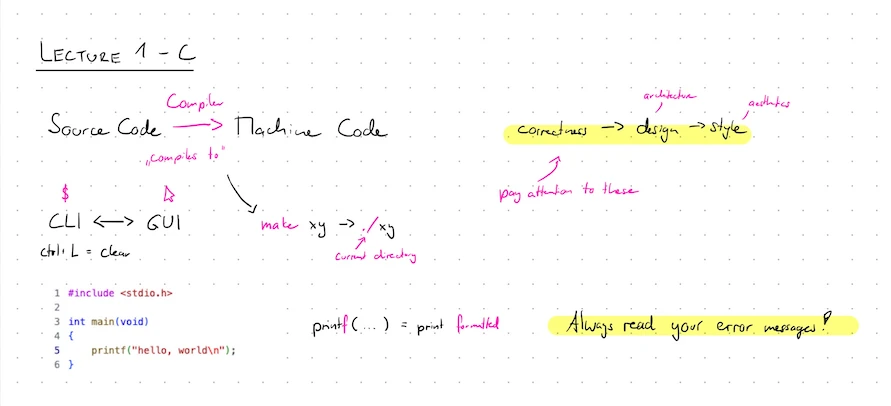 LECTURE 1 - C
Compiler
Source Code → Machine Code
„compiles to"
correctness → design → style
architecture
aesthetics
pay attention to these
$
CLI ↔ GUI
ctrl + L = clear
make xy → ./xy
current directory
1 #include <stdio.h>
2
3 int main(void)
4 {
5     printf("hello, world\n");
6 }
printf(...) = print formatted
Always read your error messages!